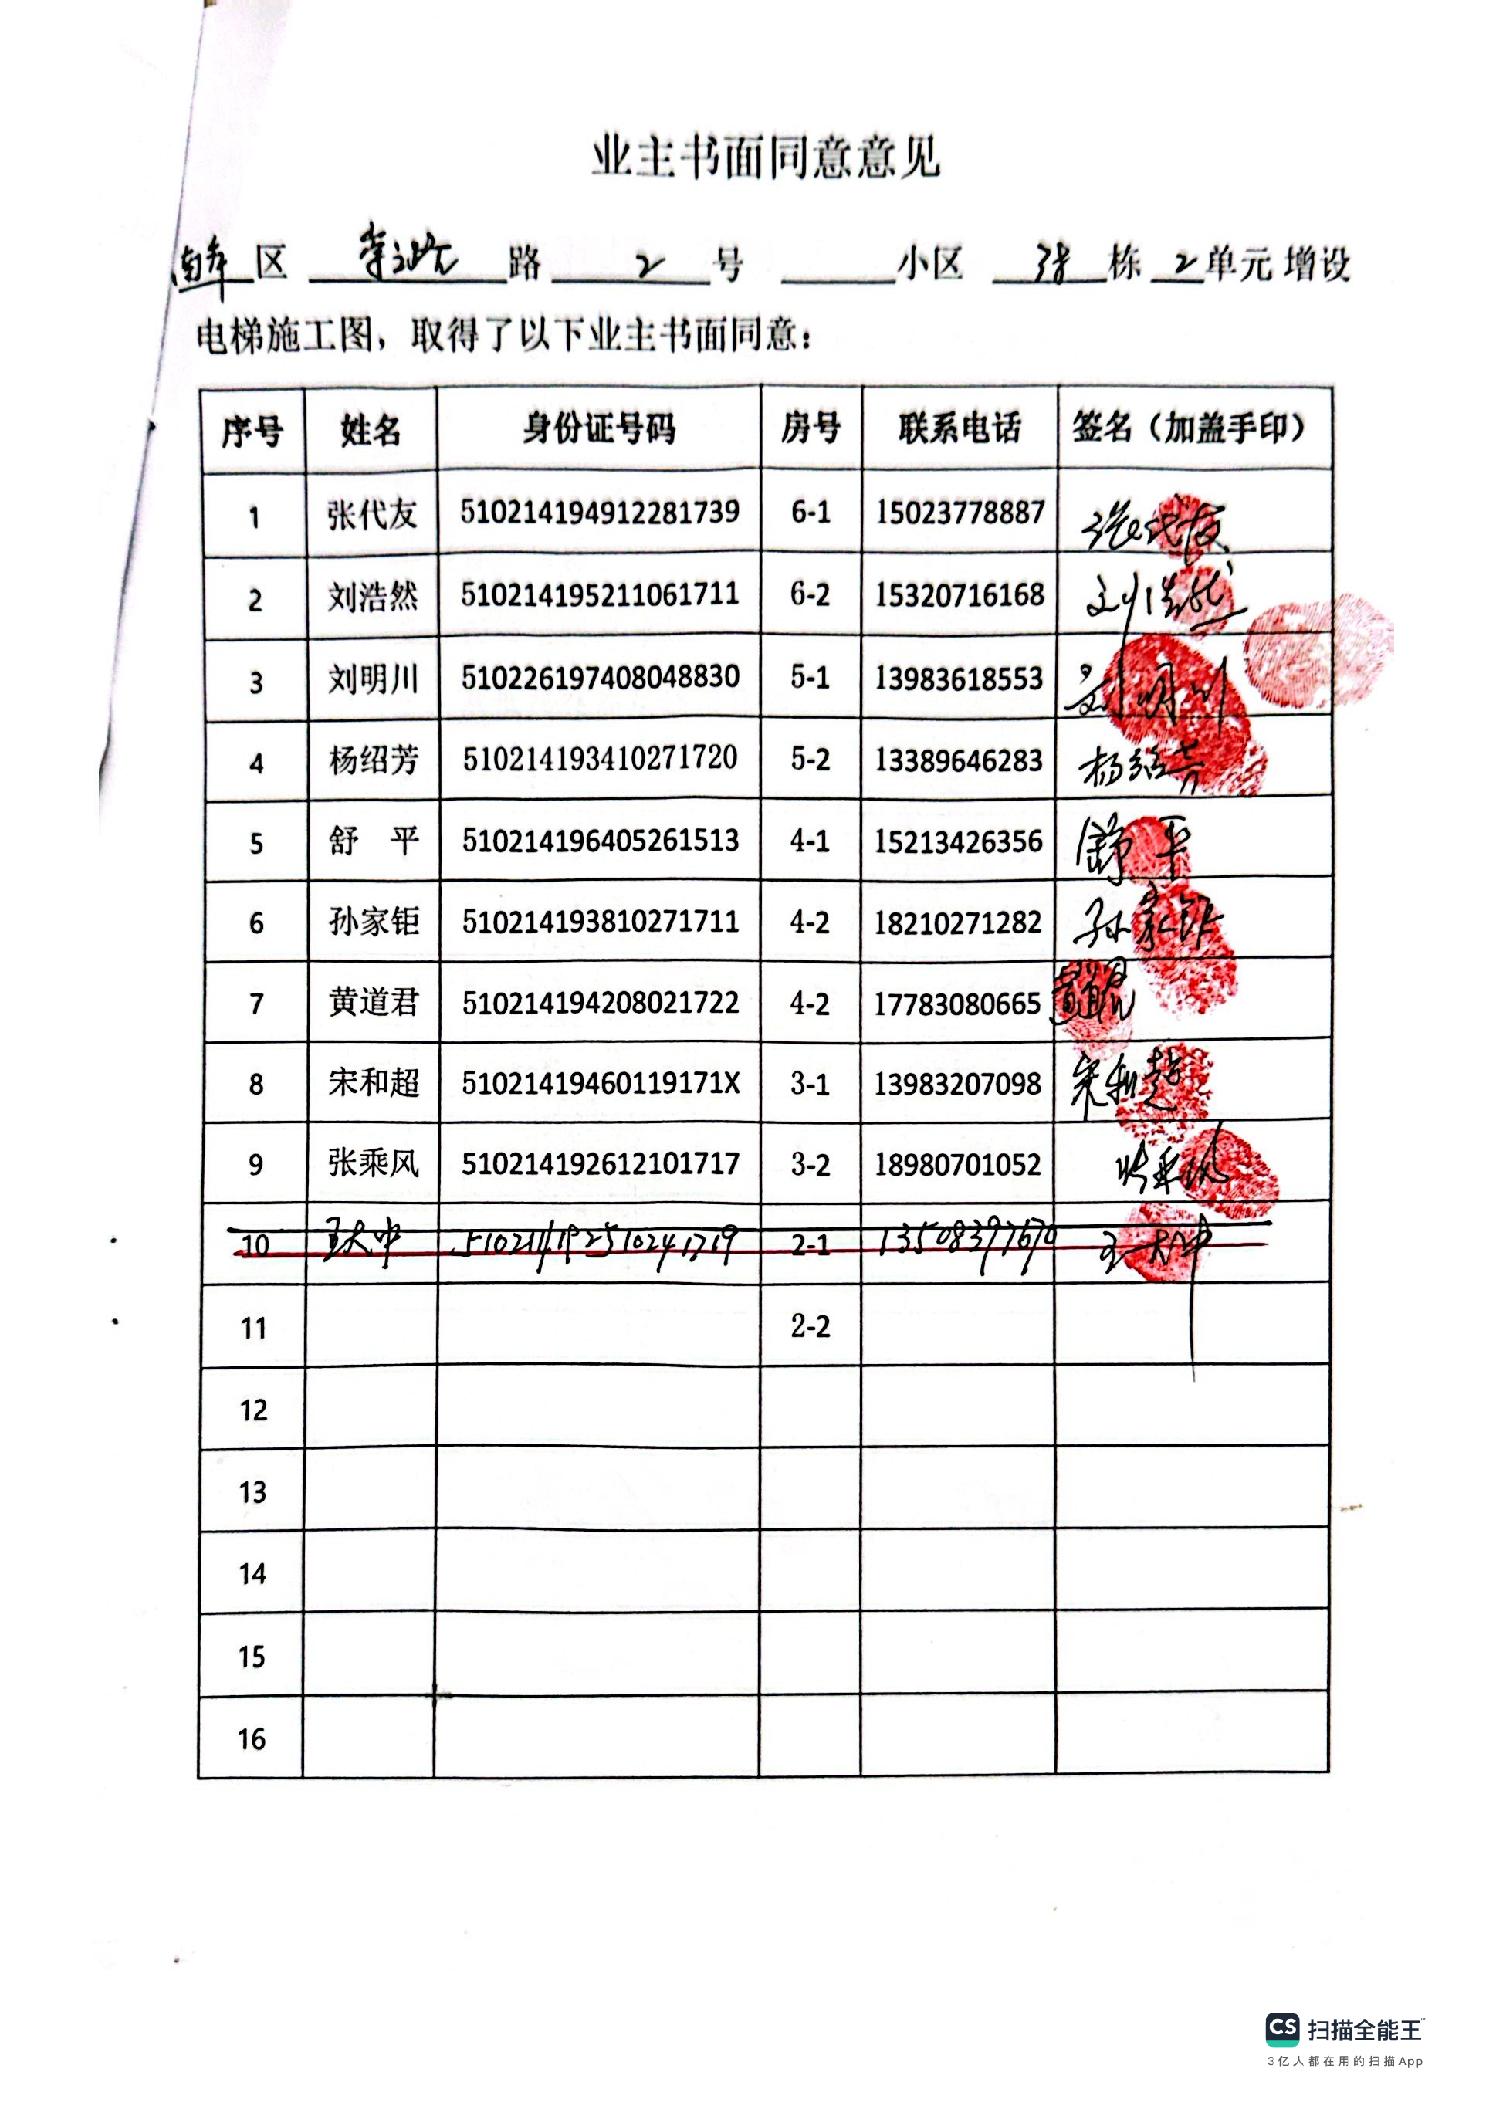 业主书面同意意见
南岸区 路 2 号 小区 38 栋 2 单元 增设
电梯施工图，取得了以下业主书面同意：
序号 姓名 身份证号码 房号 联系电话 签名（加盖手印）
1 张代友 510214194912281739 6-1 15023778887 张代友
2 刘浩然 510214195211061711 6-2 15320716168 刘浩然
3 刘明川 510226197408048830 5-1 13983618553 刘明川
4 杨绍芳 510214193410271720 5-2 13389646283 杨绍芳
5 舒 平 510214196405261513 4-1 15213426356 舒平
6 孙家钜 510214193810271711 4-2 18210271282 孙家钜
7 黄道君 510214194208021722 4-2 17783080665 黄道君
8 宋和超 51021419460119171X 3-1 13983207098 宋和超
9 张乘风 510214192612101717 3-2 18980701052 张乘风
10 王大中 2-1 13508397670 王大中
11 2-2
12
13
14
15
16
CS 扫描全能王
3亿人都在用的扫描App